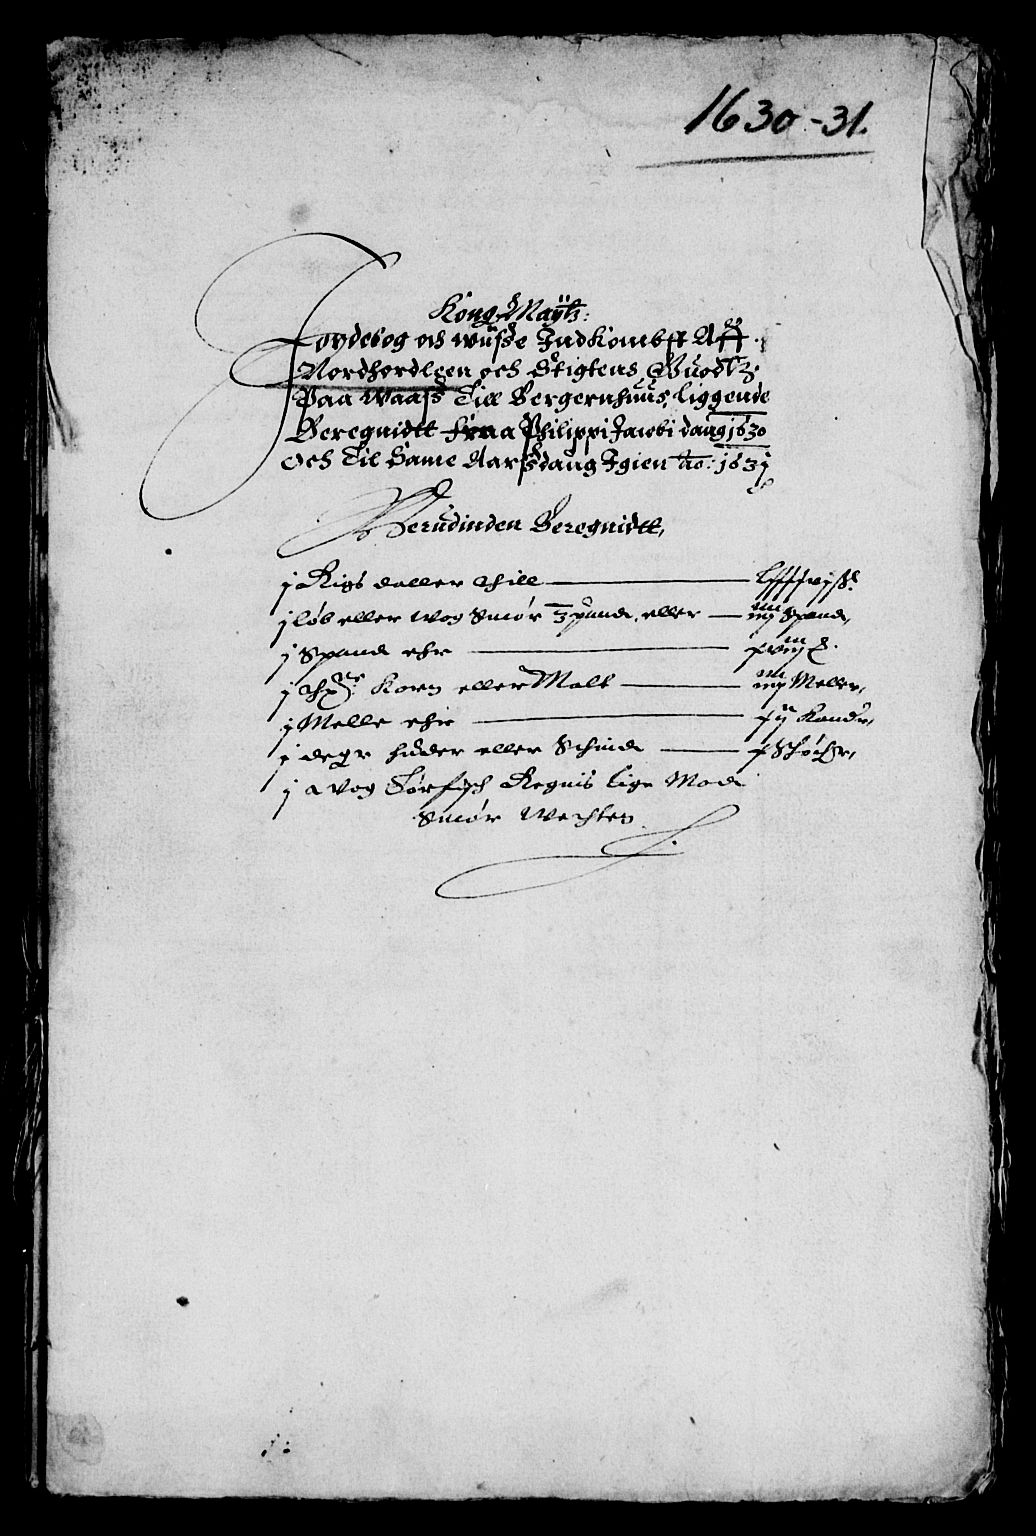 1630-31.
Kong: Maÿtz:
Jordebog och wüsße Indkombst Aff
Nordhordleen och Stigtens Guodtz
Paa Waasß Till Bergernhuus, liggende
Beregnidtt fraa Philippi Jacobi daug 1630
och Til Same Aarsßdaug Igien Ao: 1631
Herudinden Beregnidtt,
j Rigs daller thill
j løb eller wog Smør 3 pund, eller — iiij Spand,
j Spand ehr
j Korn eller Malt — iiij Meller,
j Melle ehr — Kander,
j degr huder eller Schind
j Wog Tørfisch Regnis lige Mod
Smør Wechten